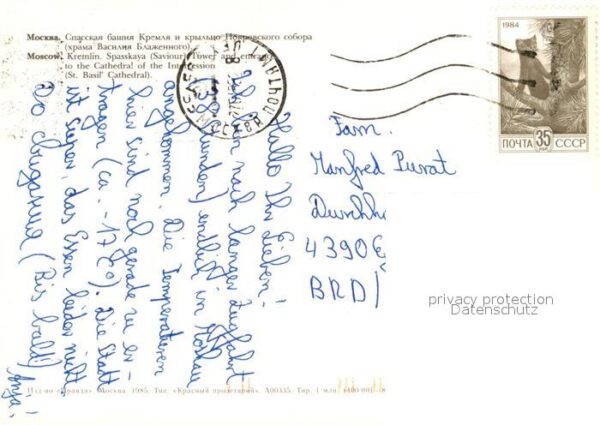 Москва. Спасская башня Кремля и крыльцо Покровского собора
(храма Василия Блаженного).
Moscow. Kremlin. Spasskaya (Saviour) Tower and entrance
to the Cathedral of the Intercession
(St. Basil' Cathedral).
1984
ПОЧТА 35 СССР
Hallo Ihr Lieben!
Ich bin nach langer Zugfahrt
Stunden) endlich in Moskau
angekommen. Die Temperaturen
hier sind noch gerade zu er-
tragen (ca. -17 C°). Die Stadt
ist super, das Essen leider nicht
До свидания (Bis bald) Anja!
Fam.
Manfred
4390
BRD
privacy protection
Datenschutz
Изд-во «Правда». Москва. 1985. Тип. «Красный пролетарий». А00335. Тир. 1 млн.